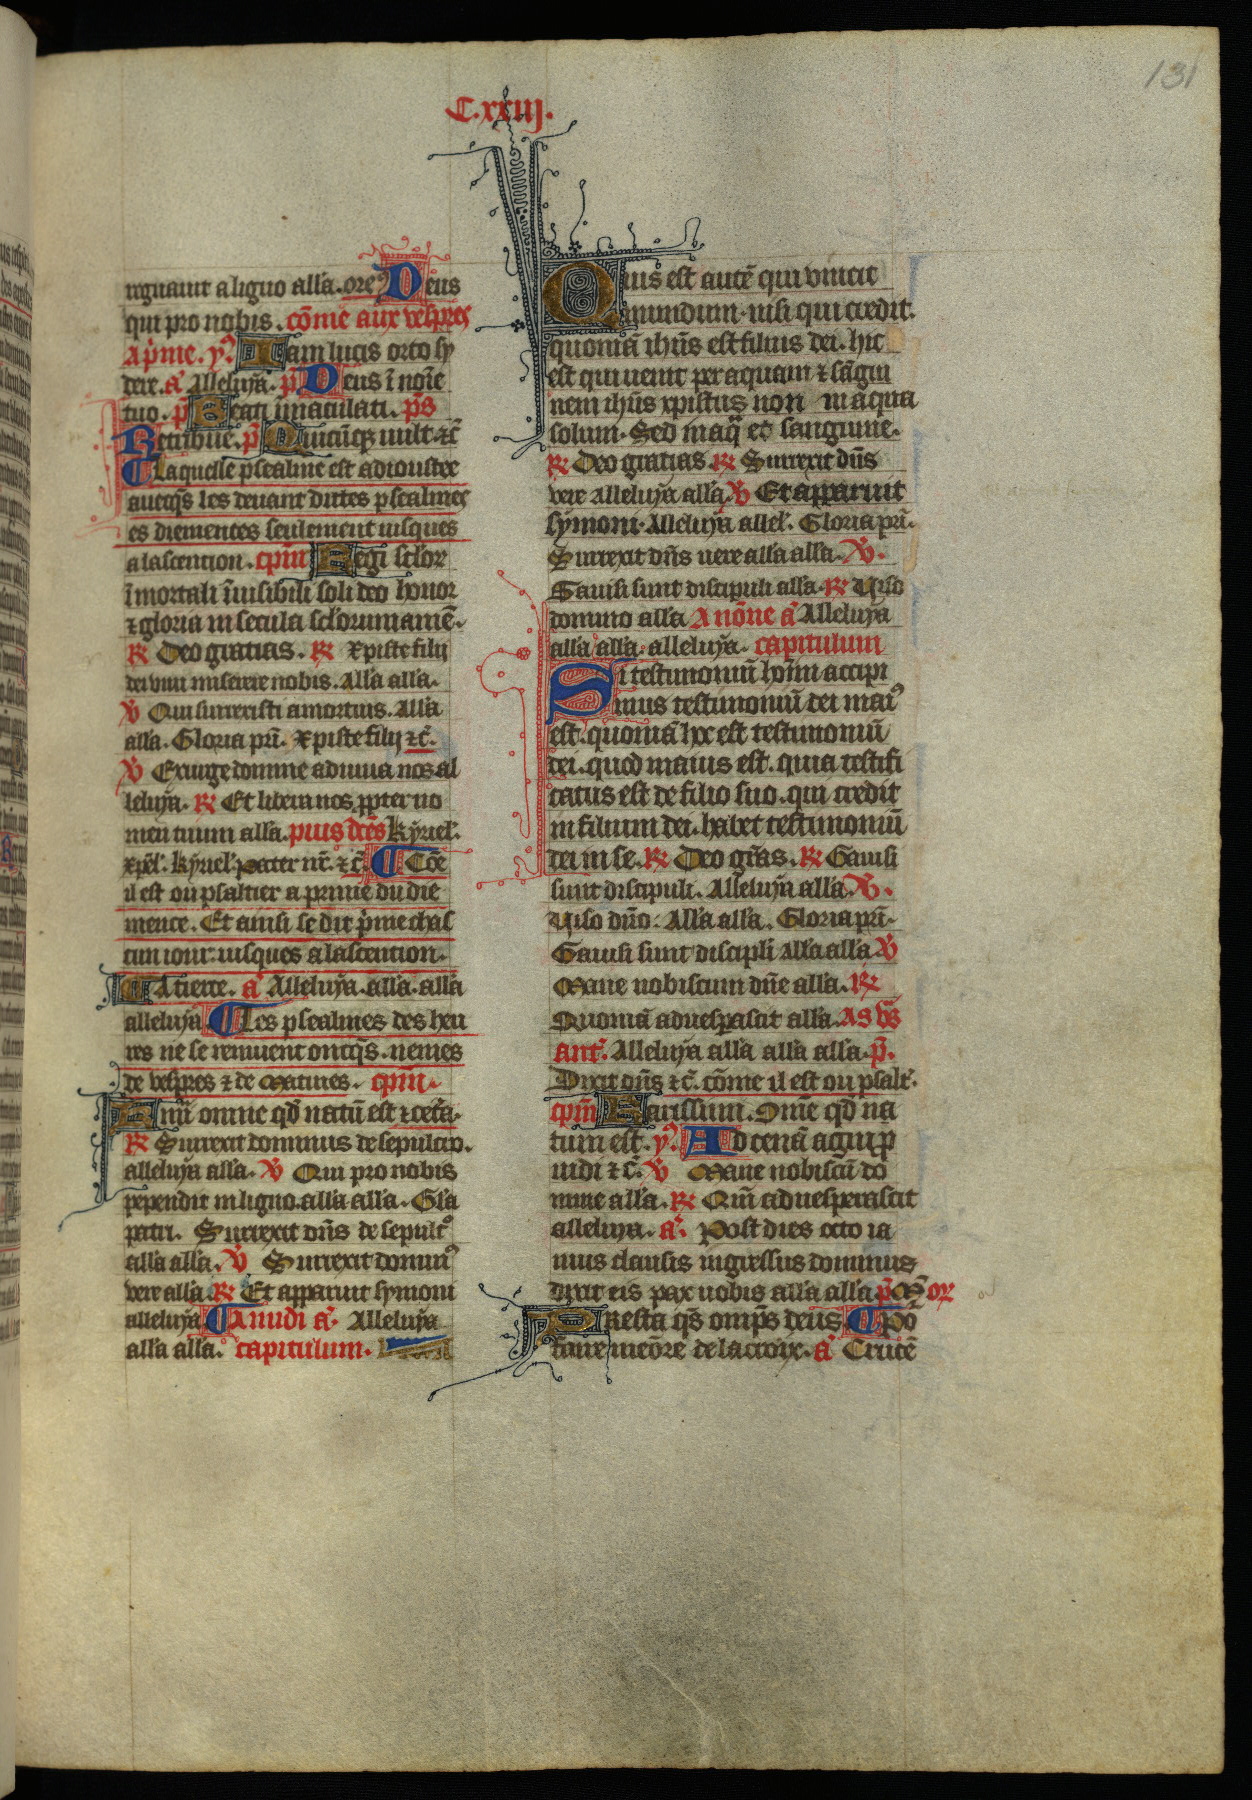 131
C.xxiij.
regnauit a ligno alla. ore Deus
qui pro nobis. cōme aux vespres
A pime. y. Iam lucis orto sy
dere. a Alleluya. p Deus ī noīe
tuo. p Beati inmaculati. ps
Retribue. p Quicūqȝ uult ⁊c̄
Laquelle psealme est adioustee
auecqs les deuant dittes psealmes
es diemences seulement iusques
a lascention. cpm Regi sclor
īmortali īuisibili soli deo honor
⁊ gloria in secula sclorum amē.
R Deo gratias. R Xpiste filii
dei viui miserere nobis. Alla alla.
V Qui surrexisti a mortuis. Alla
alla. Gloria pri. Xpiste filij ⁊c̄.
V Exurge domine adiuua nos al
leluya. R Et libera nos ppter no
men tuum alla. pius dces Kyriel.
xpel. Kyriel. pater nr. ⁊c̄. Cōe
il est ou psaltier a prime du die
mence. Et ainsi se dit pime chas
cun iour iusques a lascention.
A tierce. a Alleluya. alla. alla
alleluya Les psealmes des heu
res ne se remuent oncqs. nemes
de vespres ⁊ de Matines. cpm.
Omnē omne qd natū est ⁊ cetā.
R Surrexit dominus de sepulcro.
alleluya alla. V Qui pro nobis
pependit in ligno. alla alla. Gla
patri. Surrexit dns de sepult
alla alla. V Surrexit domin
vere alla. R Et apparuit symoni
alleluya A midi a. Alleluya
alla alla. capitulum.
Quis est autē qui vincit
mundum. nisi qui credit.
quoniā ihus est filius dei. hic
est qui uenit per aquam ⁊ sāgui
nem ihus xpistus non in aqua
solum. Sed in aq̄ et sanguine.
R Deo gratias. R Surrexit dns
vere alleluya alla V Et apparuit
symoni. Alleluya allel. Gloria pri.
Surrexit dns uere alla alla. V.
Gauisi sunt discipuli alla. R Uiso
domino alla A nōne a Alleluya
alla alla. alleluya. capitulum
Si testimoniū homi accipi
mus testimoniū dei mai
est. quoniā hec est testimoniū
dei. quod maius est. quia testifi
catus est de filio suo. qui credit
in filium dei. habet testimoniū
dei in se. R Deo gras. R Gauisi
sunt discipuli. Alleluya alla V.
Uiso dno. Alla alla. Gloria pri.
Gauisi sunt discipli alla alla V
Mane nobiscum dne alla. R
Quoniā aduespascit alla. As vs
ant. Alleluya alla alla alla. p.
Dixit dns ⁊c̄. cōme il est ou psalt.
cpm Karissimi. Ome qd na
tum est. y. Ad cenā agni p
uidi ⁊c̄. V Mane nobiscū do
mine alla. R Qm aduesperascit
alleluya. a. Post dies octo ia
nuis clausis ingressus dominus
dixit eis pax uobis alla alla p M or
Presta qs omps deus Po
faire meōre de la croix. a Crucē